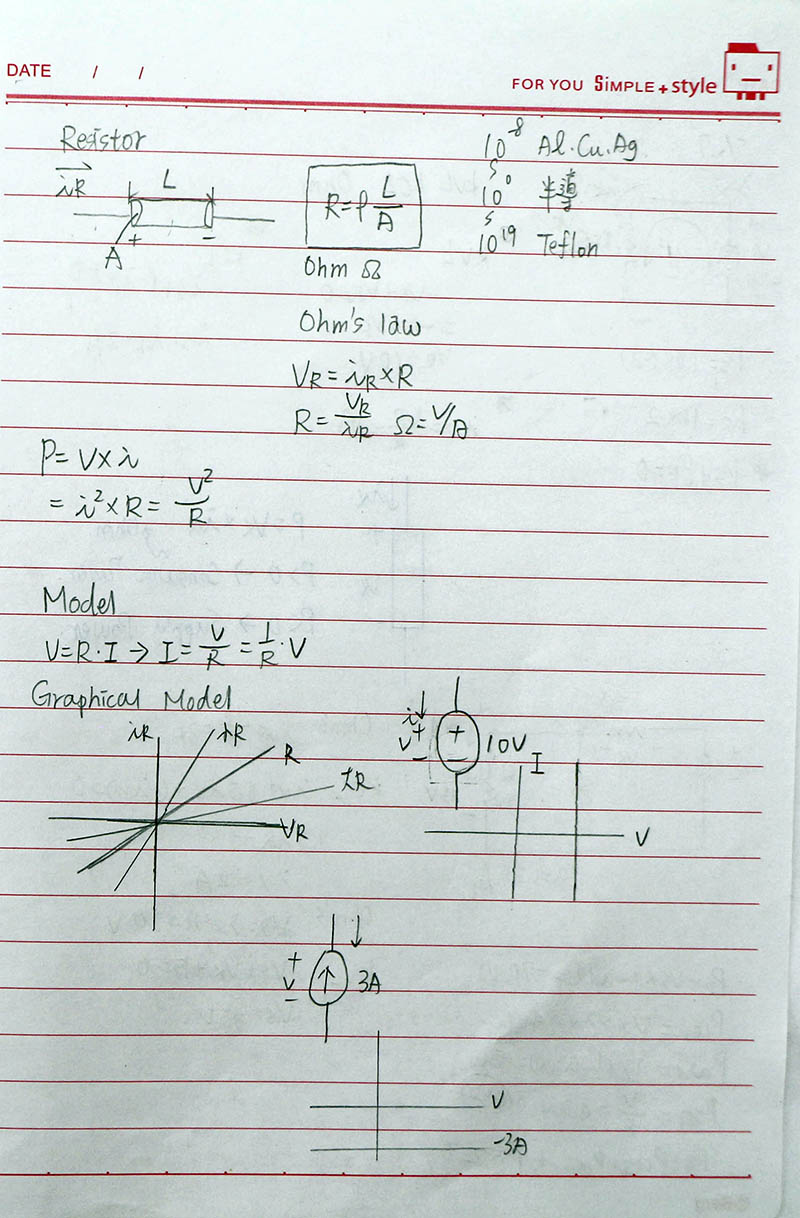 DATE / /
FOR YOU SiMPLE + style
Resistor
iR
L
A
+ -
R = ρ L/A
Ohm Ω
10^-8 Al. Cu. Ag
10^0 半導
10^19 Teflon
Ohm's law
VR = iR × R
R = VR/iR Ω = V/A
P = V × i
= i² × R = V²/R
Model
V = R · I → I = V/R = 1/R · V
Graphical Model
iR
小R
R
大R
VR
i
V
+ -
+ -
10V
I
V
+
V
-
3A
V
-3A